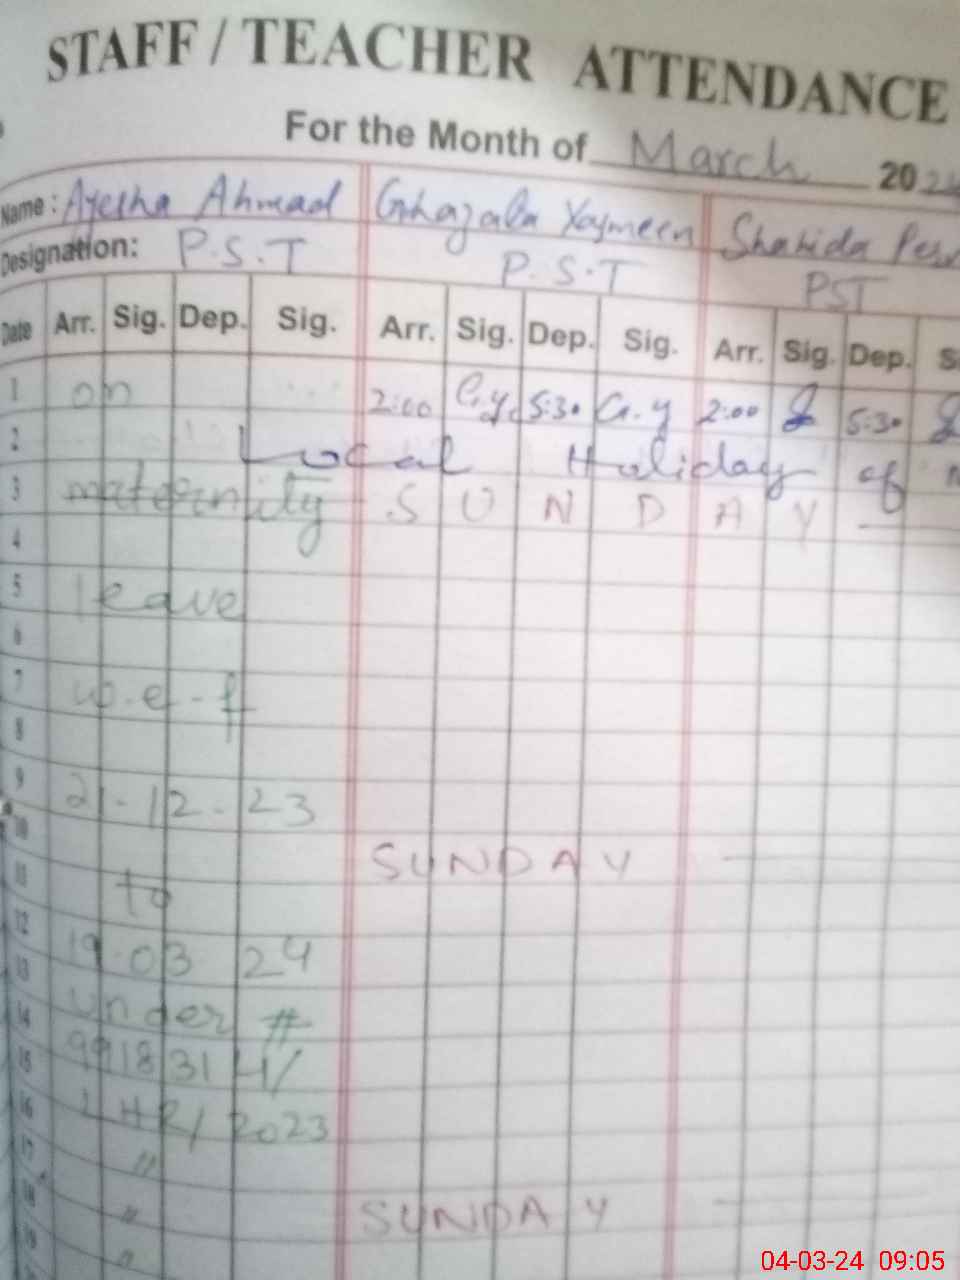 STAFF / TEACHER ATTENDANCE
For the Month of March 2024
Name: Ayesha Ahmad Ghazala Yasmeen Shahida
Designation: P.S.T P.S.T PST
Date Arr. Sig. Dep. Sig. Arr. Sig. Dep. Sig. Arr. Sig. Dep.
1 on 2:00 G.y. 5:30 G.y 2:00 5:30
2 Local Holiday of
3 maternity SUNDAY
4
5 leave
6
7 w.e-f
8
9 21-12-23
10 SUNDAY
11 to
12 19.03 24
13 under #
14 9918314/
15 LHR/2023
16
17 "
18 " SUNDAY
19 "
04-03-24 09:05